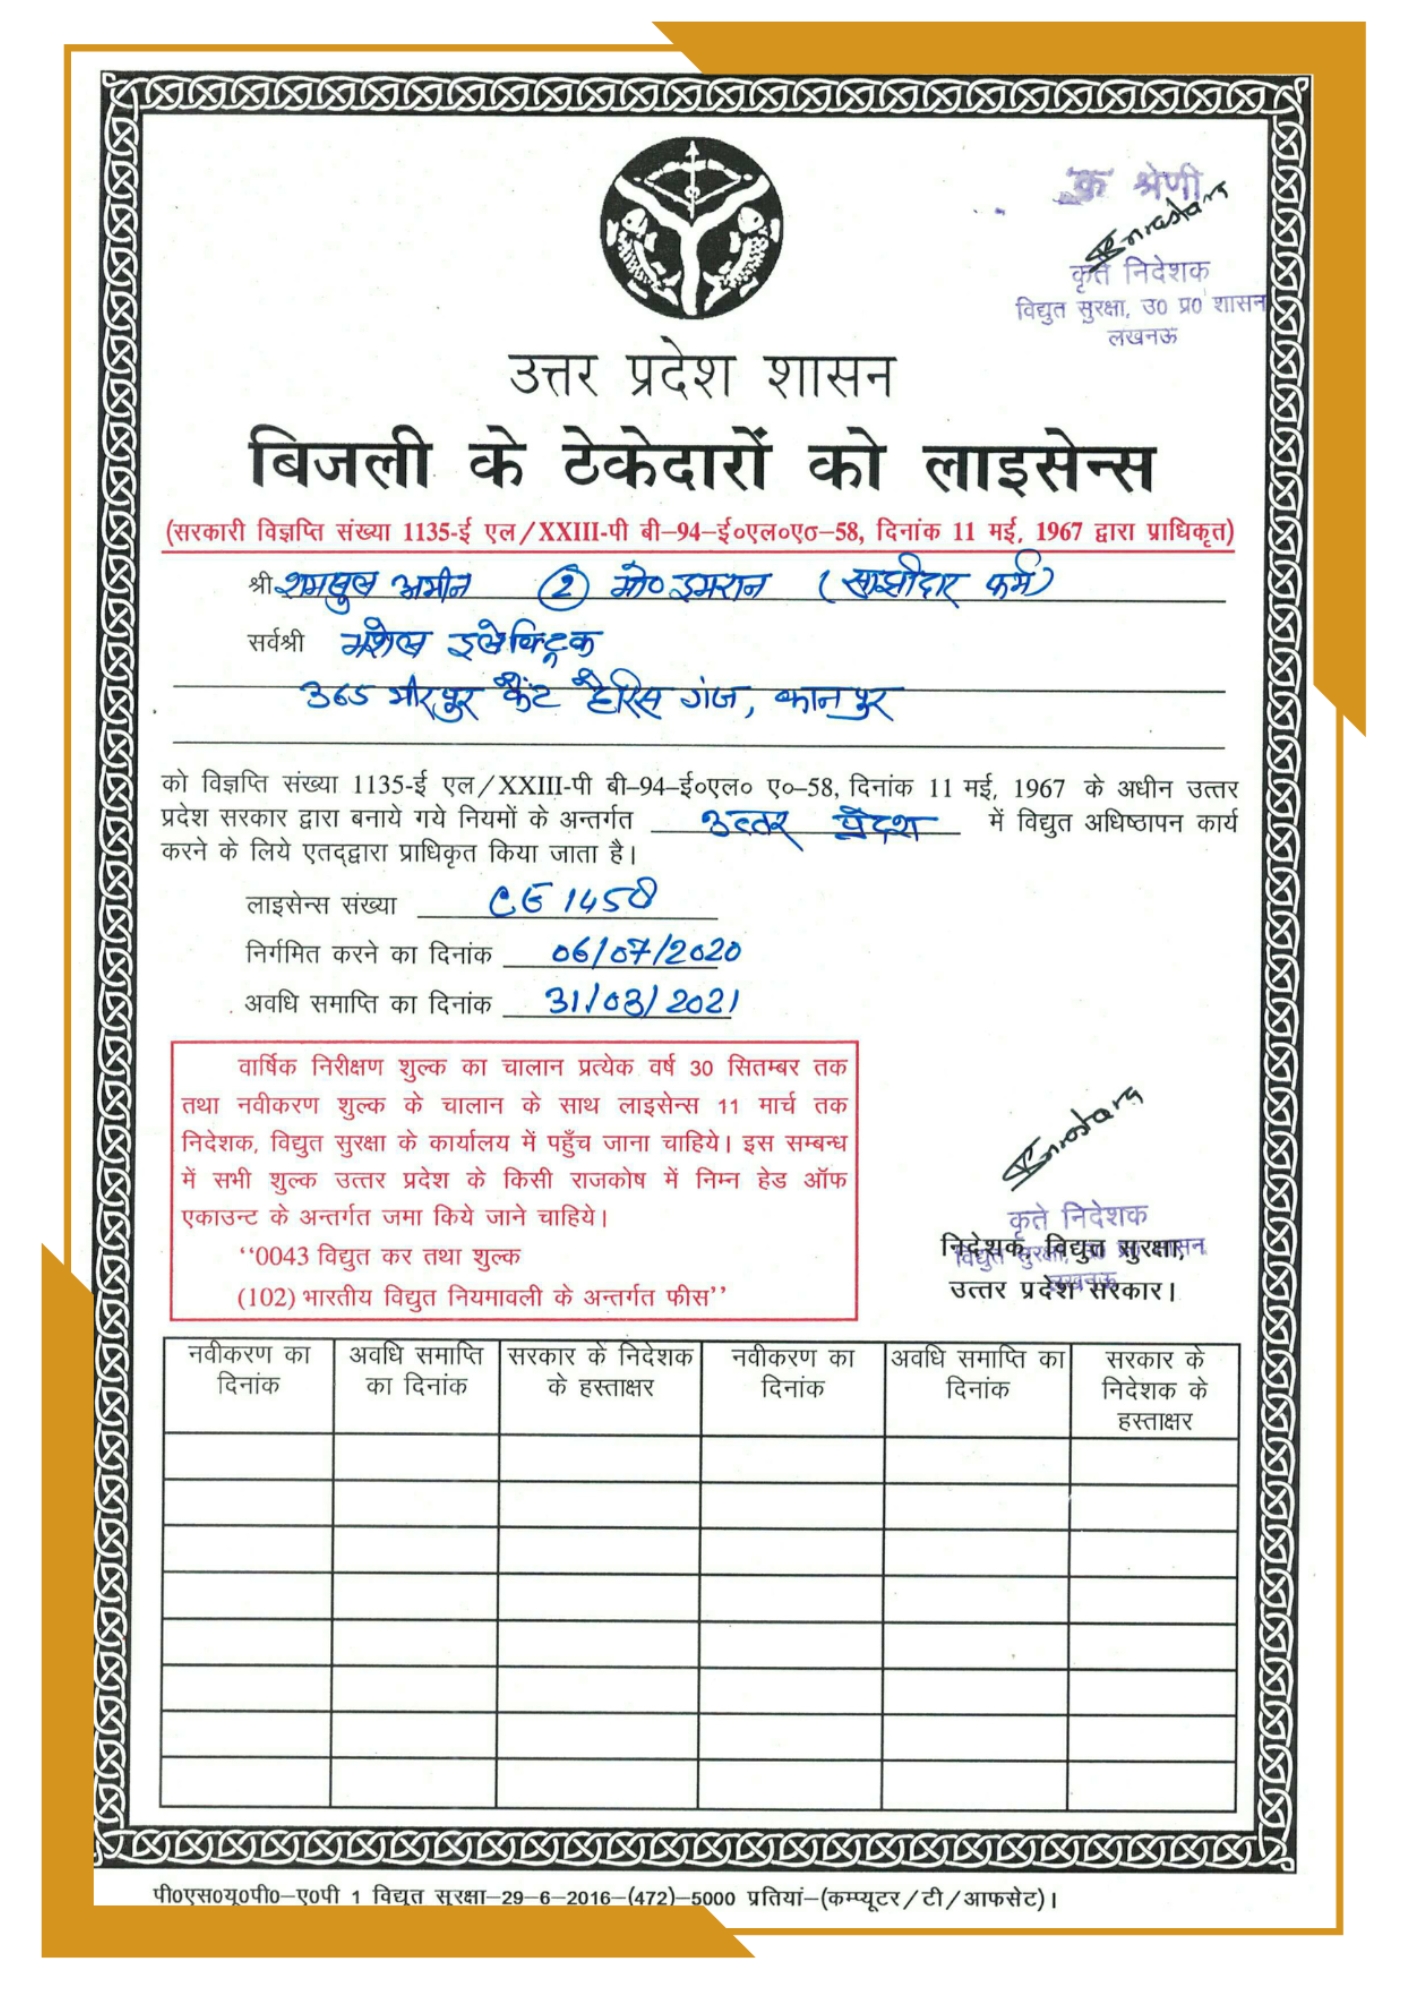 क श्रेणी
कृते निदेशक
विद्युत सुरक्षा, उ0 प्र0 शासन
लखनऊ
उत्तर प्रदेश शासन
बिजली के टेकेदारों को लाइसेन्स
(सरकारी विज्ञप्ति संख्या 1135-ई एल/XXIII-पी बी–94–ई०एल०ए०–58, दिनांक 11 मई, 1967 द्वारा प्राधिकृत)
श्री शमसुल अमीन (2) मो० इमरान (साझीदार फर्म)
सर्वश्री मशेल इलेक्ट्रिक
365 मीरपुर कैंट हैरिस गंज, कानपुर
को विज्ञप्ति संख्या 1135-ई एल/XXIII-पी बी–94–ई०एल० ए०–58, दिनांक 11 मई, 1967 के अधीन उत्तर
प्रदेश सरकार द्वारा बनाये गये नियमों के अन्तर्गत उत्तर प्रदेश में विद्युत अधिष्ठापन कार्य
करने के लिये एतद्द्वारा प्राधिकृत किया जाता है।
लाइसेन्स संख्या CE 1458
निर्गमित करने का दिनांक 06/07/2020
अवधि समाप्ति का दिनांक 31/03/2021
वार्षिक निरीक्षण शुल्क का चालान प्रत्येक वर्ष 30 सितम्बर तक
तथा नवीकरण शुल्क के चालान के साथ लाइसेन्स 11 मार्च तक
निदेशक, विद्युत सुरक्षा के कार्यालय में पहुँच जाना चाहिये। इस सम्बन्ध
में सभी शुल्क उत्तर प्रदेश के किसी राजकोष में निम्न हेड ऑफ
एकाउन्ट के अन्तर्गत जमा किये जाने चाहिये।
‘‘0043 विद्युत कर तथा शुल्क
(102) भारतीय विद्युत नियमावली के अन्तर्गत फीस’’
कृते निदेशक
निदेशक, विद्युत सुरक्षा,
विद्युत सुरक्षा, उ0 प्र0 शासन
उत्तर प्रदेश सरकार।
लखनऊ
नवीकरण का दिनांक अवधि समाप्ति का दिनांक सरकार के निदेशक के हस्ताक्षर नवीकरण का दिनांक अवधि समाप्ति का दिनांक सरकार के निदेशक के हस्ताक्षर
पी0एस0यू0पी0–ए0पी 1 विद्युत सुरक्षा–29–6–2016–(472)–5000 प्रतियां–(कम्प्यूटर/टी/आफसेट)।